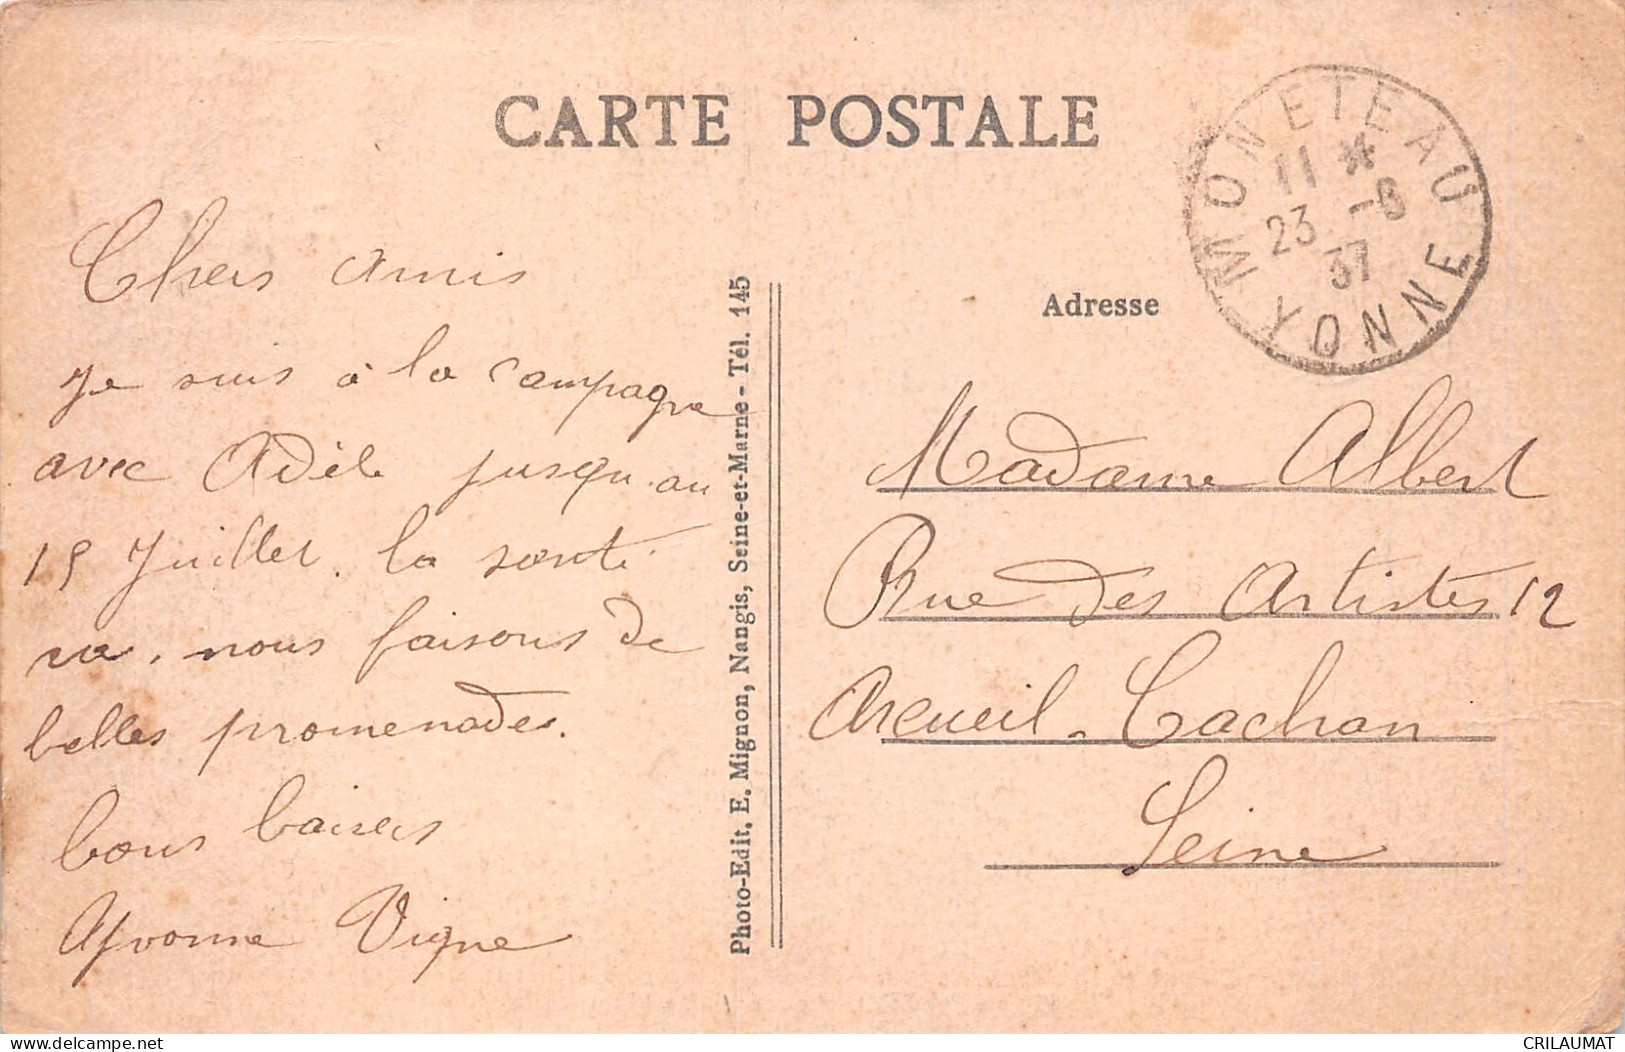 CARTE POSTALE
MONETEAU
11 *
23 -6
37
YONNE
Chers Amis
Je suis à la Campagne
avec Adèle jusqu'au
15 Juillet. la santé
va. nous faisons de
belles promenades.
bons baisers
Yvonne Vigne
Photo-Edit. E. Mignon, Nangis, Seine-et-Marne - Tél. 145
Adresse
Madame Albert
Rue des Artistes 12
Arcueil-Cachan
Seine
delcampe.net
CRILAUMAT